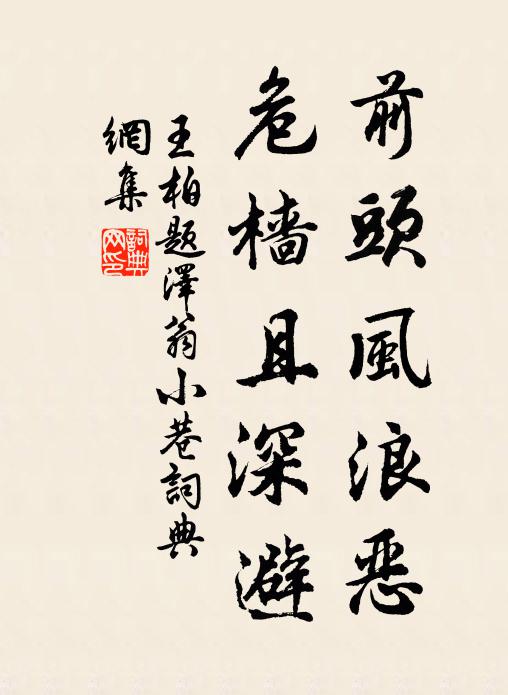 前頭風浪惡
危檣且深避
王柏題澤翁小巷詞典
網集
詞典
网印